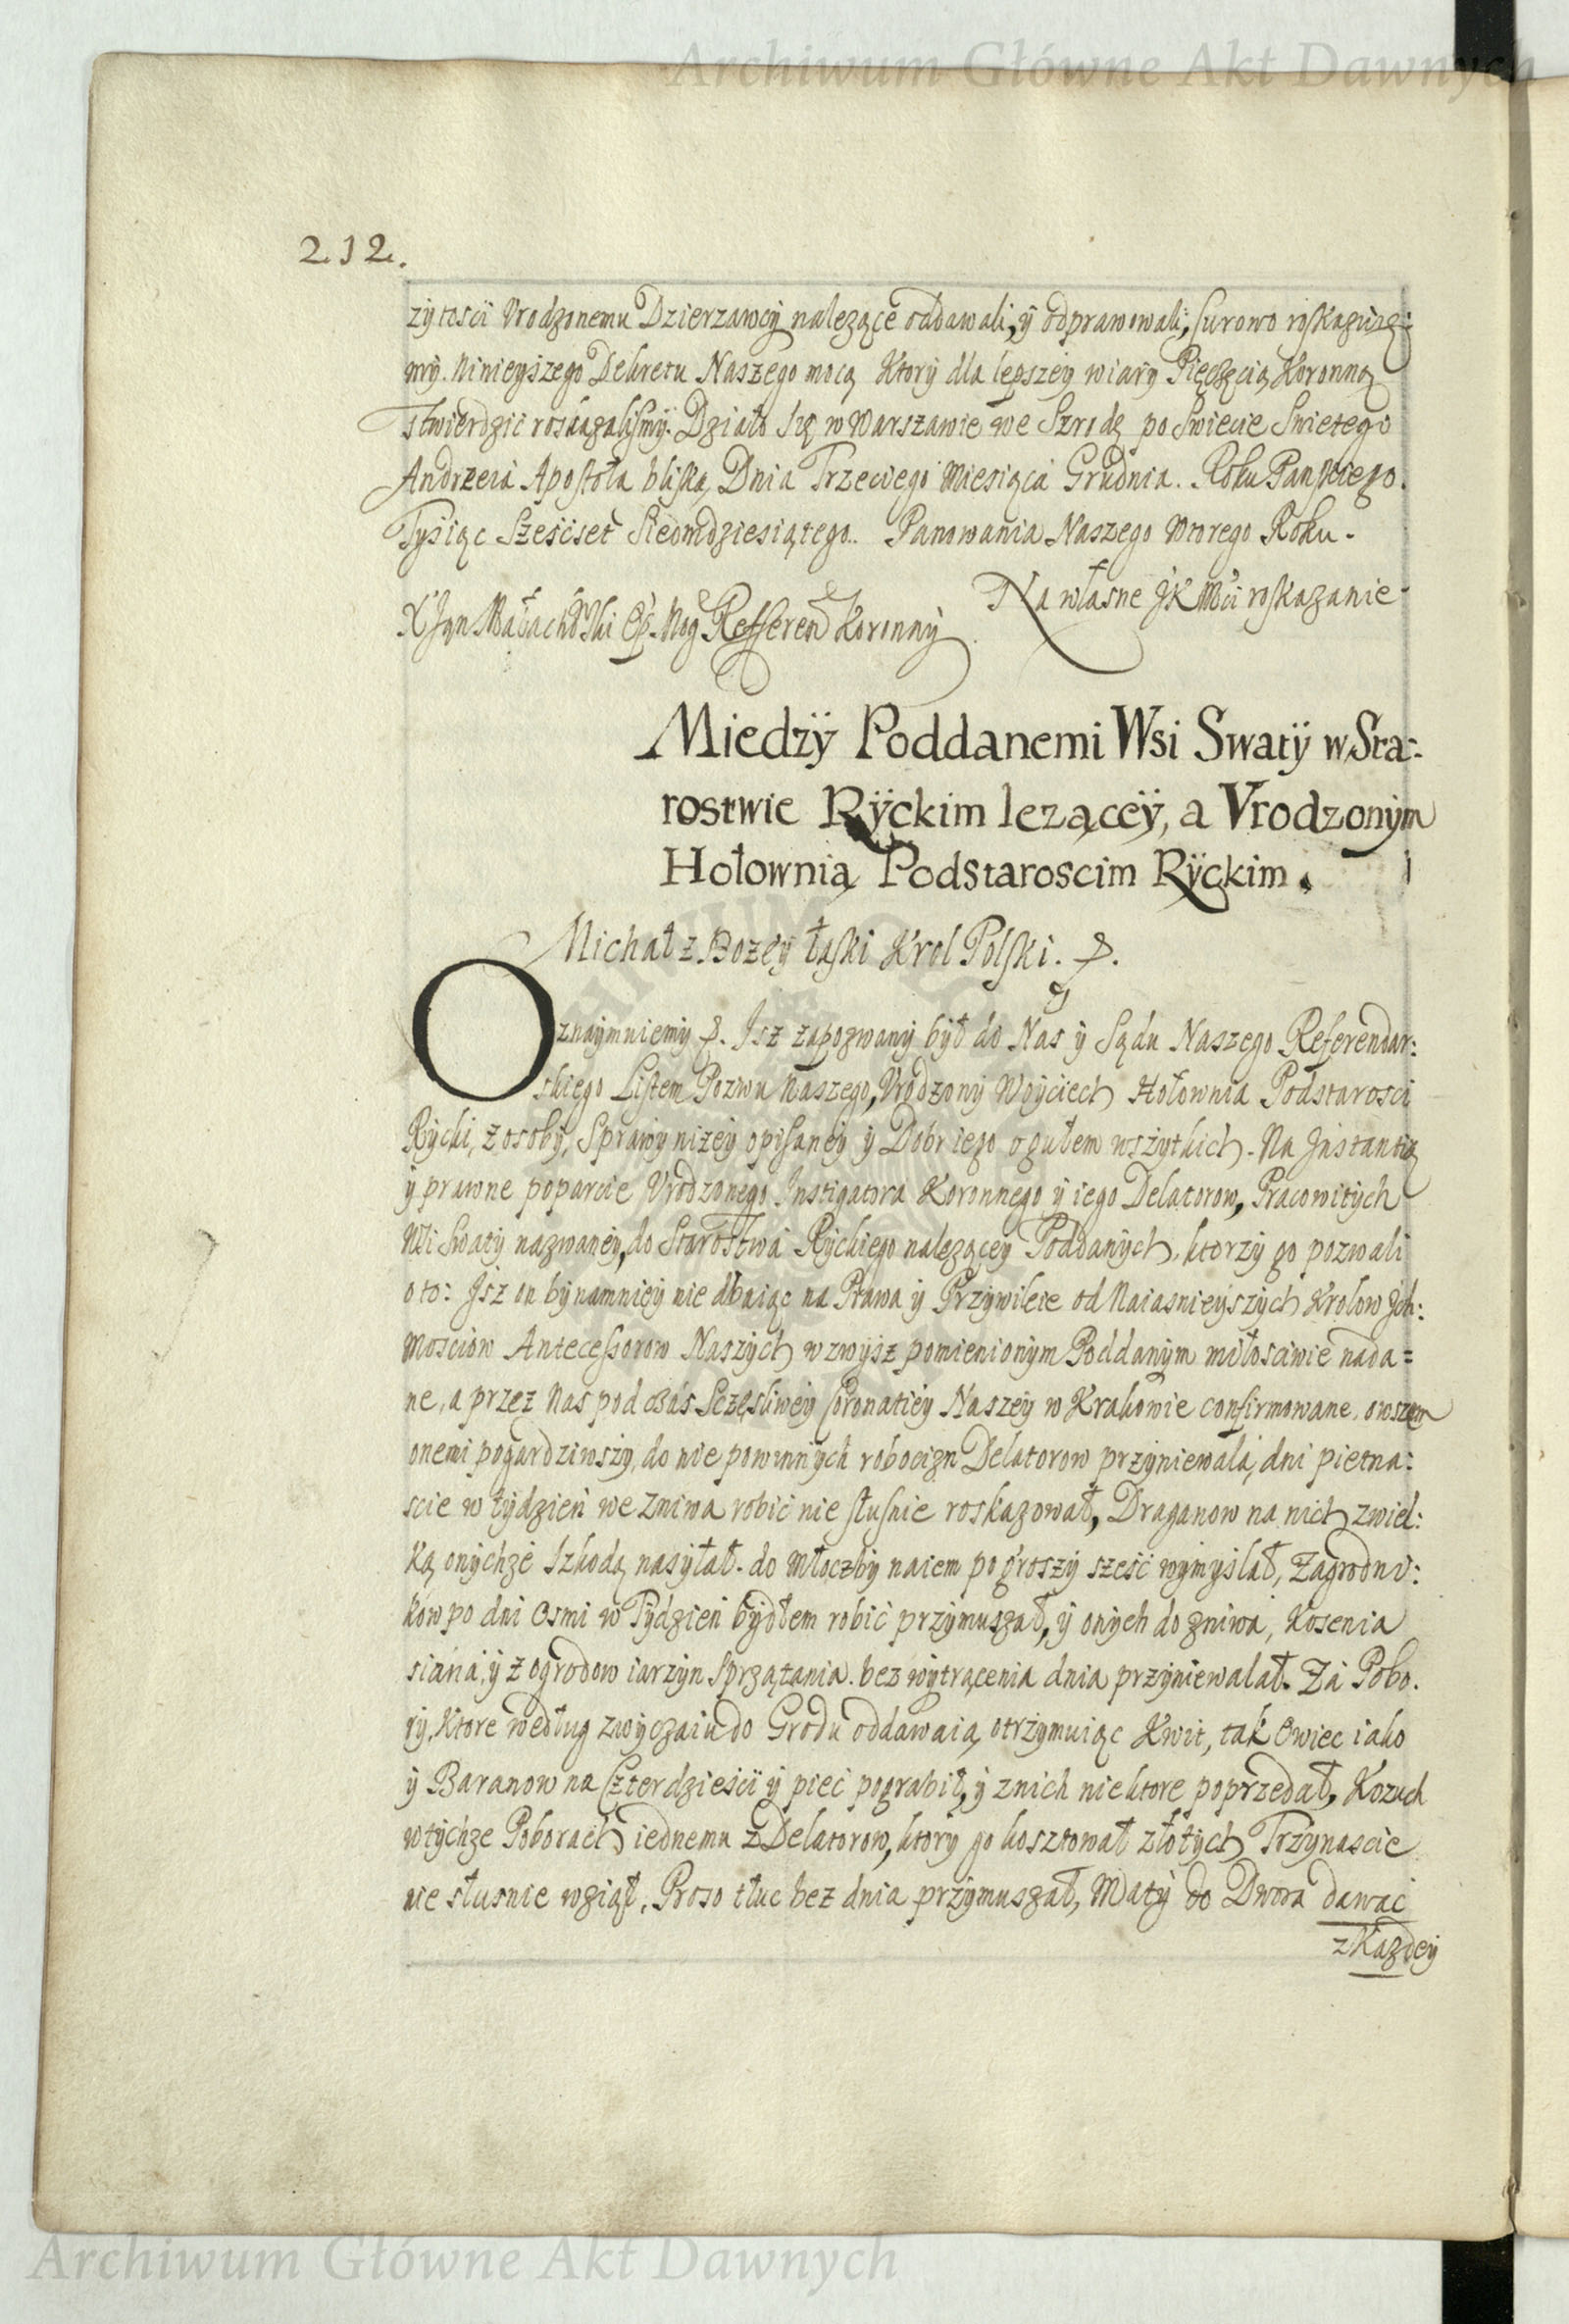 Archiwum Główne Akt Dawnych
212.
zytoscii Vrodzonemu Dzierzawcÿ nalezące oddawali, ÿ odprawowali, surowo roskazuie:
mÿ. Ninieyszego Dekretu Naszego mocą Ktory dla lepszeÿ wiarÿ Pięczęcią Koronną
stwierdzić roskazalismÿ. Dziáło Się w Warszawie we Szrodę po Swiecie Swietego
Andrzeia Apostoła bliską, Dnia Trzeciego Miesiąca Grudnia. Roku Panskiego.
Tysiąc Szescset Siedmdziesiątego. Panowania Naszego Wtorego Roku.
Na własne JK Mći roskazanie
X Jan Małachowski Mog Refferen Koronnÿ
Miedzÿ Poddanemi Wsi Swatÿ w Sta:
rostwie Rÿckim lezącëÿ, a Vrodzonÿm
Hołownią Podstaroscim Rÿckim.
Michał z Bozeÿ łaski Krol Polski. &.
Oznaÿmuiemy &. Isz zapozwanÿ bÿł do Nas ÿ Sądu Naszego Referendar:
skiego Listem Pozwu Naszego, Vrodzonÿ Woÿciech Hołownia Podstarosci
Rÿcki, z osobÿ, Sprawÿ nizeÿ opisaneÿ ÿ Dobr iego ogułem wszÿtkich. Na Jnstantią
ÿ prawne poparcie Vrodzonego Instigatora Koronnego ÿ iego Delatorow, Pracowitÿch
Wsi Swatÿ nazwaneÿ, do Starostwa Rÿckiego nalezącey Poddanÿch, ktorzÿ go pozwali
oto: Jsz on bÿnamnieÿ nie dbaiąc na Prawa ÿ Przywileie od Naiasnieÿszÿch Krolow Jch:
Mosciow Antecessorow Naszÿch wzwÿsz pomienionÿm Poddanÿm miłosciwie nada=
ne, a przez Nas pod czás Sczęsliweÿ Coronatieÿ Naszeÿ w Krakowie confirmowane, owszem
onemi pogardziwszÿ, do nie powinnÿch robocizn Delatorow przÿniewala, dni pietna:
scie w tÿdzień we zniwa robić nie słusnie roskazował, Draganow na nich z wiel:
ką onÿchże Szkodą nasÿłał. do młoczbÿ naiem po groszÿ szesć wÿmÿslał, Zagrodni:
kow po dni Osmi w Tÿdzień bÿdłem robić przÿmuszał, ÿ onÿch do zniwa, Kosenia
siana, ÿ z ogrodow iarzÿn Sprzątania. bez wÿtrącenia dnia przÿniewalał. Za Pobo.
rÿ, Ktore według zwÿczaiu do Grodu oddawaią, otrzÿmuiąc Kwit, tak Owiec iako
ÿ Baranow na Czterdziescii ÿ pieć pograbił, ÿ z nich niektore poprzedał, Kozuch
w tÿchze Poborach iednemu z Delatorow, ktorÿ go kosztował złotÿch Trzÿnascie
nie słusnie wziął, Proso tłuc bez dnia przÿmuszał, Matÿ do Dwora dawać
z Kazdeÿ
Archiwum Główne Akt Dawnych